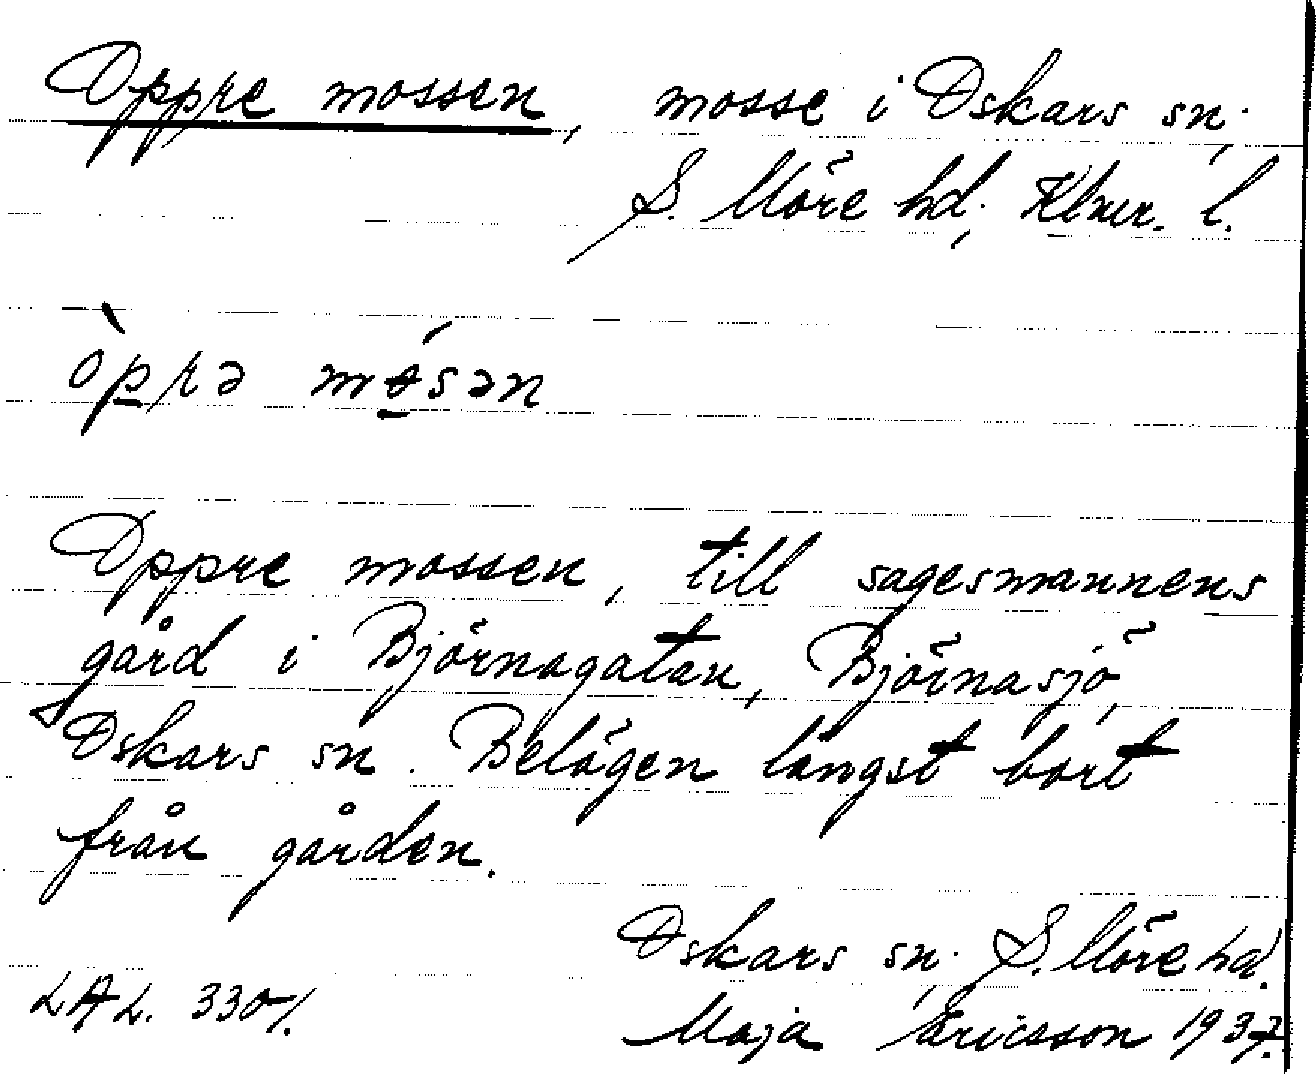 Oppre mossen, mosse i Oskars sn,
S. Möre hd, Klmr. l.
òprə mósən
Oppre mossen, till sagesmannens
gård i Björnagatan, Björnasjö,
Oskars sn. Belägen längst bort
från gården.
Oskars sn, S. Möre hd.
LAL. 3307. Maja Ericsson 1937.